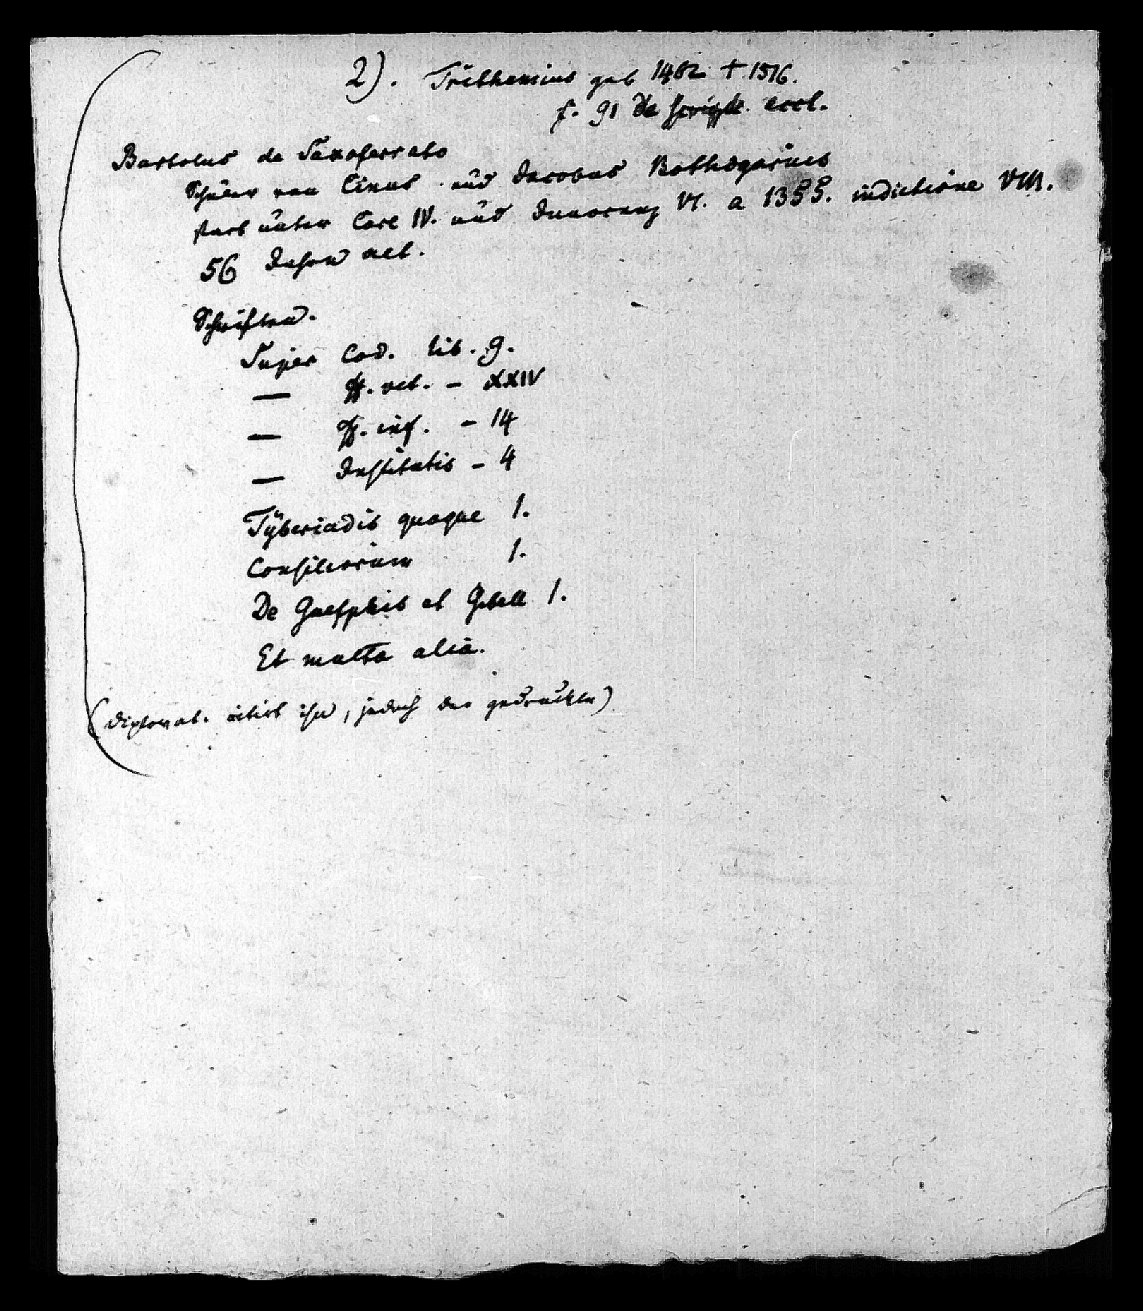 2). Trithemius geb 1462 + 1516.
f. 91 de script. eccl.
Bartolus de Saxoferrato
Schüler von Cinus und Jacobus
starb unter Carl IV. und Innocenz VI. a 1355. indictione VIII.
56 Jahre alt.
Schriften.
Super Cod. lib. 9.
— ff. vet. – XXIV
— ff. inf. – 14
— Institutis – 4
Tyberiadis quoque 1.
Consiliorum 1.
De Guelphis et Gibell 1.
Et multa alia.
(Diplovat. citirt ihn, jedoch der gedruckte)